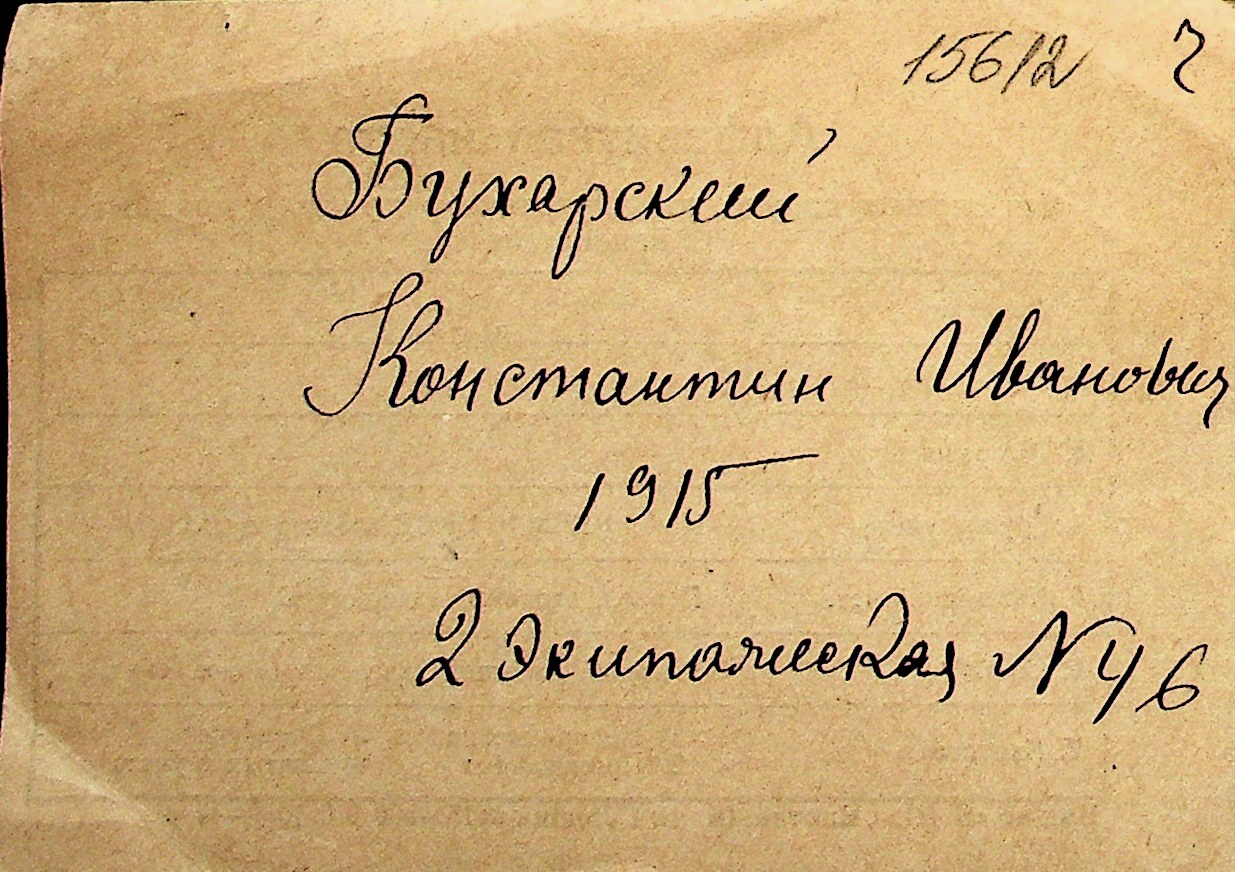 15612 ч
Бухарский
Константин Иванович
1915
2 Экипажеская N 46